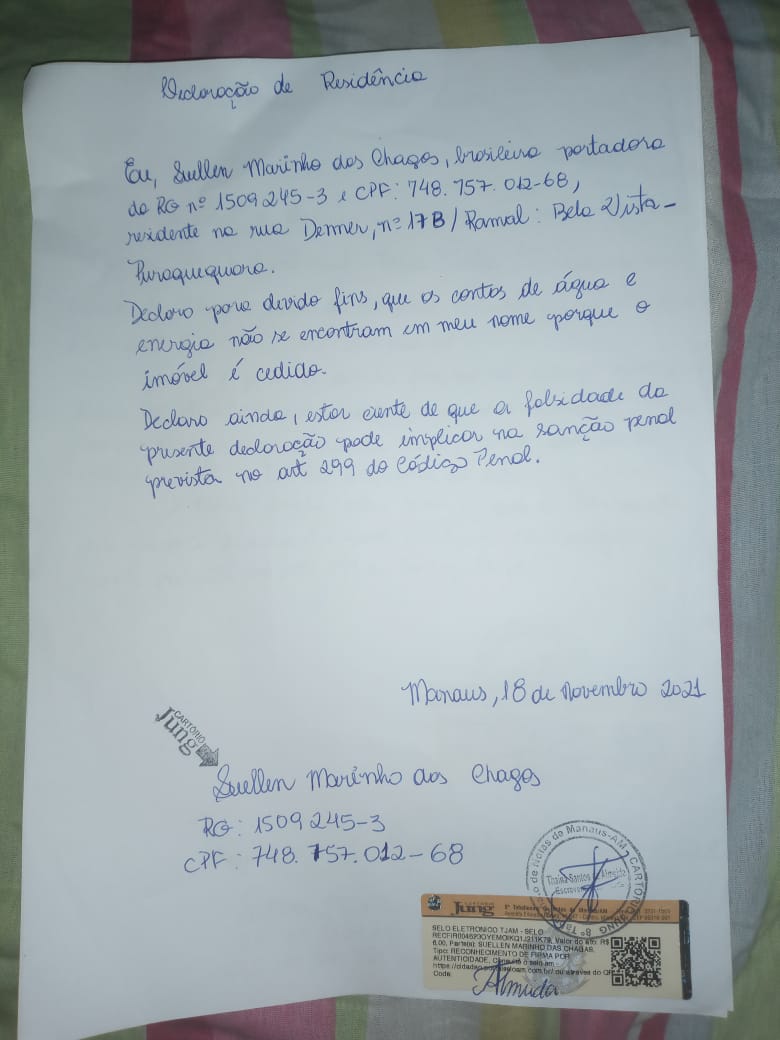 Declaração de Residência
Eu, Suellen Marinho das Chagas, brasileira portadora
do RG nº 1509245-3 e CPF: 748.757.012-68,
residente na rua Denner, nº 17B / Ramal: Bela Vista -
Puraquequara.
Declaro para devido fins, que as contas de água e
energia não se encontram em meu nome porque o
imóvel é cedido.
Declaro ainda, estar ciente de que a falsidade da
presente declaração pode implicar na sanção penal
prevista no art 299 do Código Penal.
Manaus, 18 de novembro 2021
CARTÓRIO
Jung
Suellen Marinho das Chagas
RG: 1509245-3
CPF: 748.757.012-68
de Notas de Manaus-AM - CARTÓRIO JUNG 8º
Thaina Santos de Almeida
Jung
SELO ELETRONICO TJAM - SELO
Valor do ato: R$
6,00, Parte(s): SUELLEN MARINHO DAS CHAGAS,
Tipo: RECONHECIMENTO DE FIRMA POR
AUTENTICIDADE, o selo em
ou através do QR
Code
Almeida